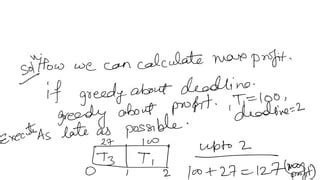 Soln How we can calculate max profit.
if greedy about deadline.
greedy about profit. T1=100,
deadline=2
Execute As late as possible.
27 100
T3 T1
0 1 2
upto 2
100+27=127 (max profit)